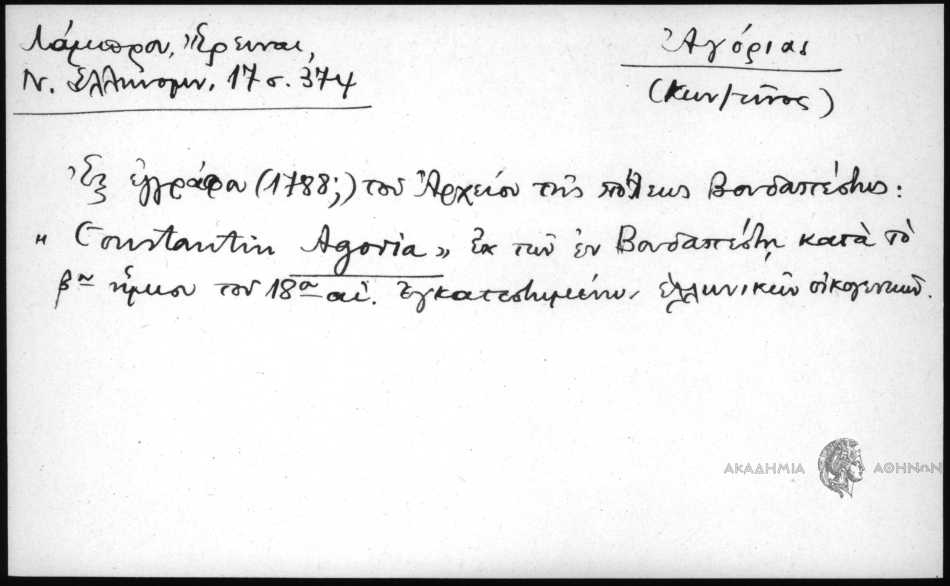 Λάμπρου, Ἔρευναι,
Ν. Ἑλληνομν. 17 σ. 374
Ἀγόριας
(Κων/τῖνος)
Ἐξ ἐγγράφου (1788;) τοῦ Ἀρχείου τῆς πόλεως Βουδαπέστης:
" Constantin Agoria » ἐκ τῶν ἐν Βουδαπέστῃ κατὰ τὸ
βον ἥμισυ τοῦ 18ου αἰ. ἐγκατεστημένων ἑλληνικῶν οἰκογενειῶν.
ΑΚΑΔΗΜΙΑ ΑΘΗΝΩΝ